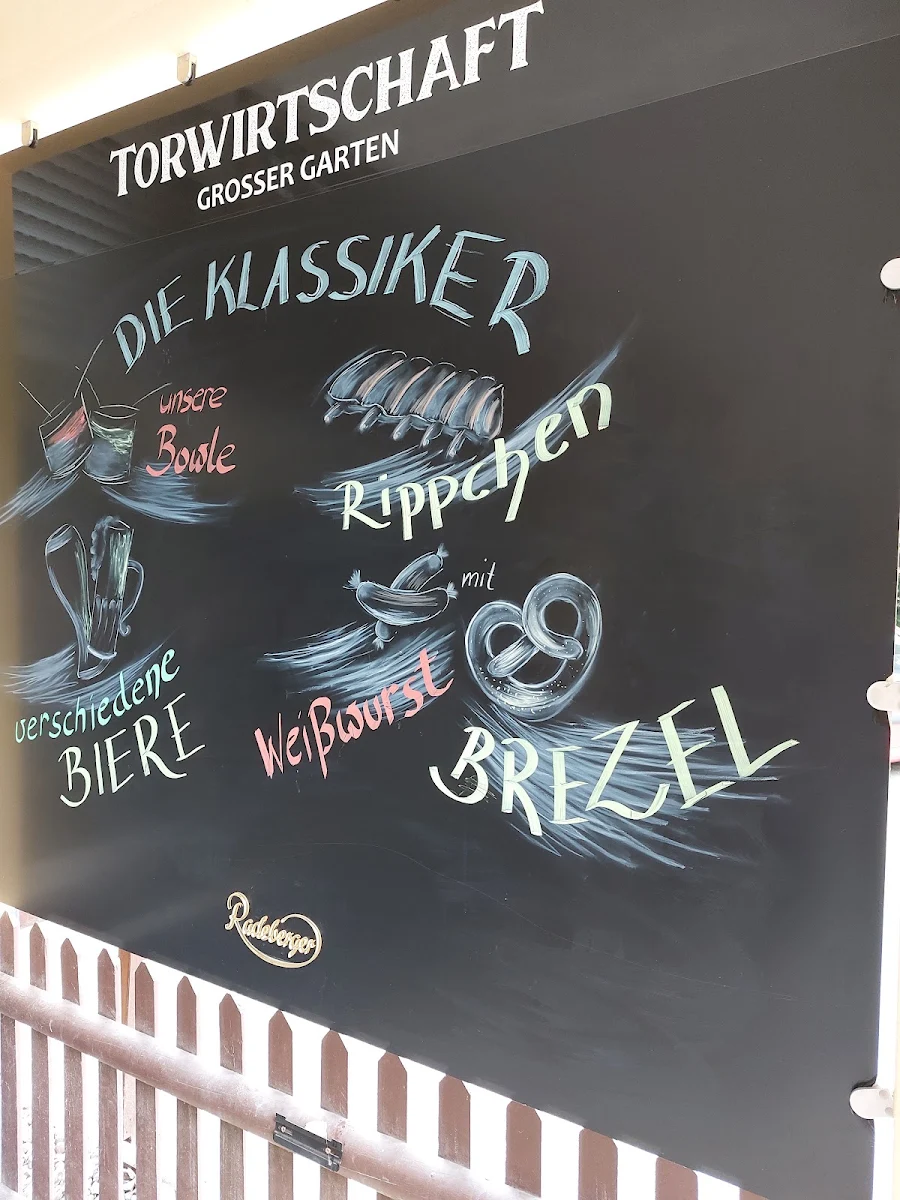 TORWIRTSCHAFT
GROSSER GARTEN
DIE KLASSIKER
unsere
Bowle
Rippchen
verschiedene
BIERE
mit
Weißwurst
BREZEL
Radeberger